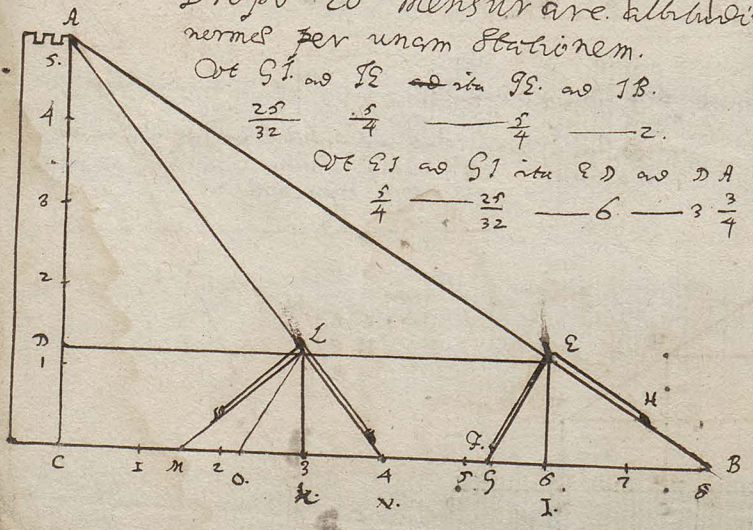 Propo 20 mensurare altitudi
nermes per unam stationem.
Vt GI. ad IE ad ita IE. ad IB.
25/32 5/4 — 5/4 — 2.
Vt EI ad GI ita ED ad DA
5/4 — 25/32 — 6 — 3 3/4
A
5.
4
3
2
D L E
1
H
F.
C 1 M 2 O. 3 4 5. G 6 7 8 B
K. N. I.